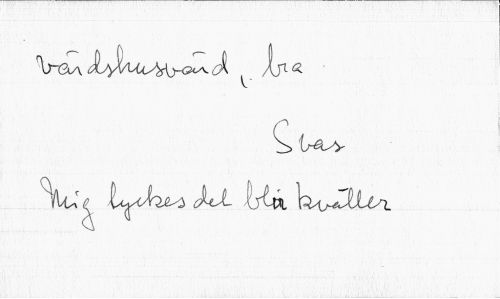 värdshusvärd, bra
Svas
Mig tyckes det blir kväller